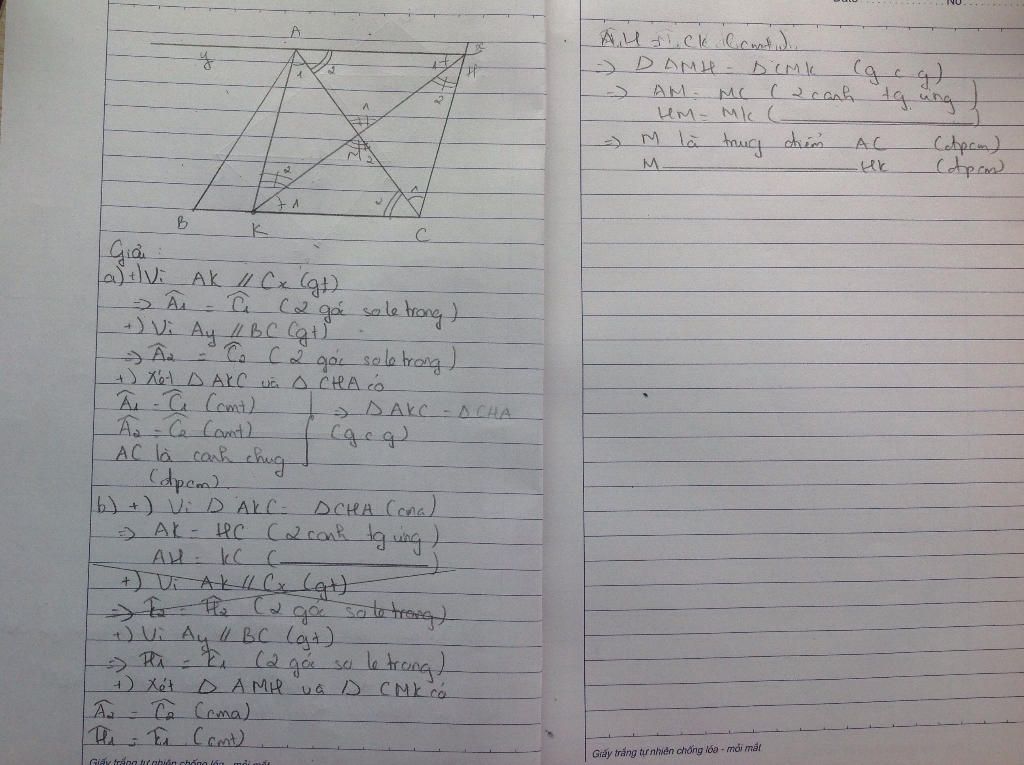 A
y
x
H
1
2
1
2
1
M 2
2
1
2
1
B
K
C
Giải:
a) +) Vì AK // Cx (gt)
=> Â1 = Ĉ1 (2 góc so le trong)
+) Vì Ay // BC (gt)
=> Â2 = Ĉ2 (2 góc so le trong)
+) Xét Δ AKC và Δ CHA có
Â1 = Ĉ1 (cmt)
Â2 = Ĉ2 (cmt)
AC là cạnh chug
=> Δ AKC = Δ CHA
(g c g)
(đpcm).
b) +) Vì Δ AKC = Δ CHA (cma)
=> AK = HC (2 cạnh tg ứng)
AH = KC ( )
+) Vì AK // Cx (gt)
=> K̂2 = Ĥ2 (2 góc so le trong)
+) Vì Ay // BC (gt)
=> Ĥ1 = K̂1 (2 góc so le trong)
+) Xét Δ AMH và Δ CMK có
Â2 = Ĉ2 (cma)
Ĥ1 = K̂1 (cmt)
Giấy trắng tự nhiên chống lóa - mỏi mắt
No
AH = CK (cmt)
=> Δ AMH = Δ CMK (g c g)
=> AM = MC (2 cạnh tg ứng)
HM = MK ( )
=> M là trug điểm AC (đpcm)
M HK (đpcm)
Giấy trắng tự nhiên chống lóa - mỏi mắt